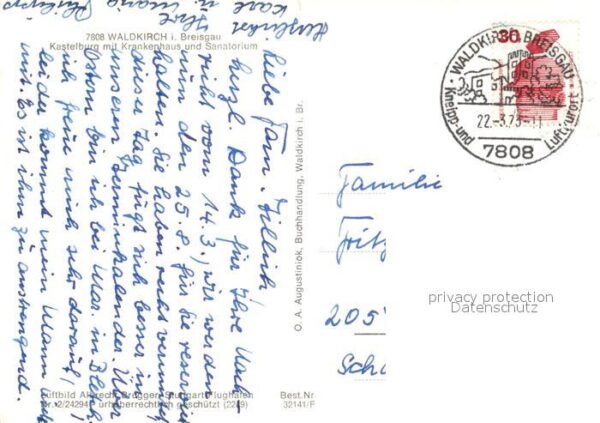 7808 WALDKIRCH i. Breisgau
Kastelburg mit Krankenhaus und Sanatorium
Liebe Fam. Zillich
herzl. Dank für Ihre Nach-
richt vom 14.3., wir werden
nun den 25.8. für Sie reservie
halten. Sie haben recht vermutet
dieser Tag fügt sich besser in
unseren Terminkalender. Über
Ostern bin ich bei Ma. in
ich freue mich sehr darauf,
leider kommt mein Mann nicht
mit. Es ist ihm zu anstrengend.
Herzlichst
Ihre
Karl u. Maria Philipp
O. A. Augustiniok, Buchhandlung, Waldkirch i. Br.
Luftbild Albrecht Brugger, Stuttgart flughafen
Nr. 2/24294 urheberrechtlich geschützt (2289)
Best.Nr
32141/F
30
WALDKIRCH BREISGAU
22.-3.73-11
Kneipp-und Luftkurort
7808
Familie
Fritz
205
Sch
privacy protection
Datenschutz